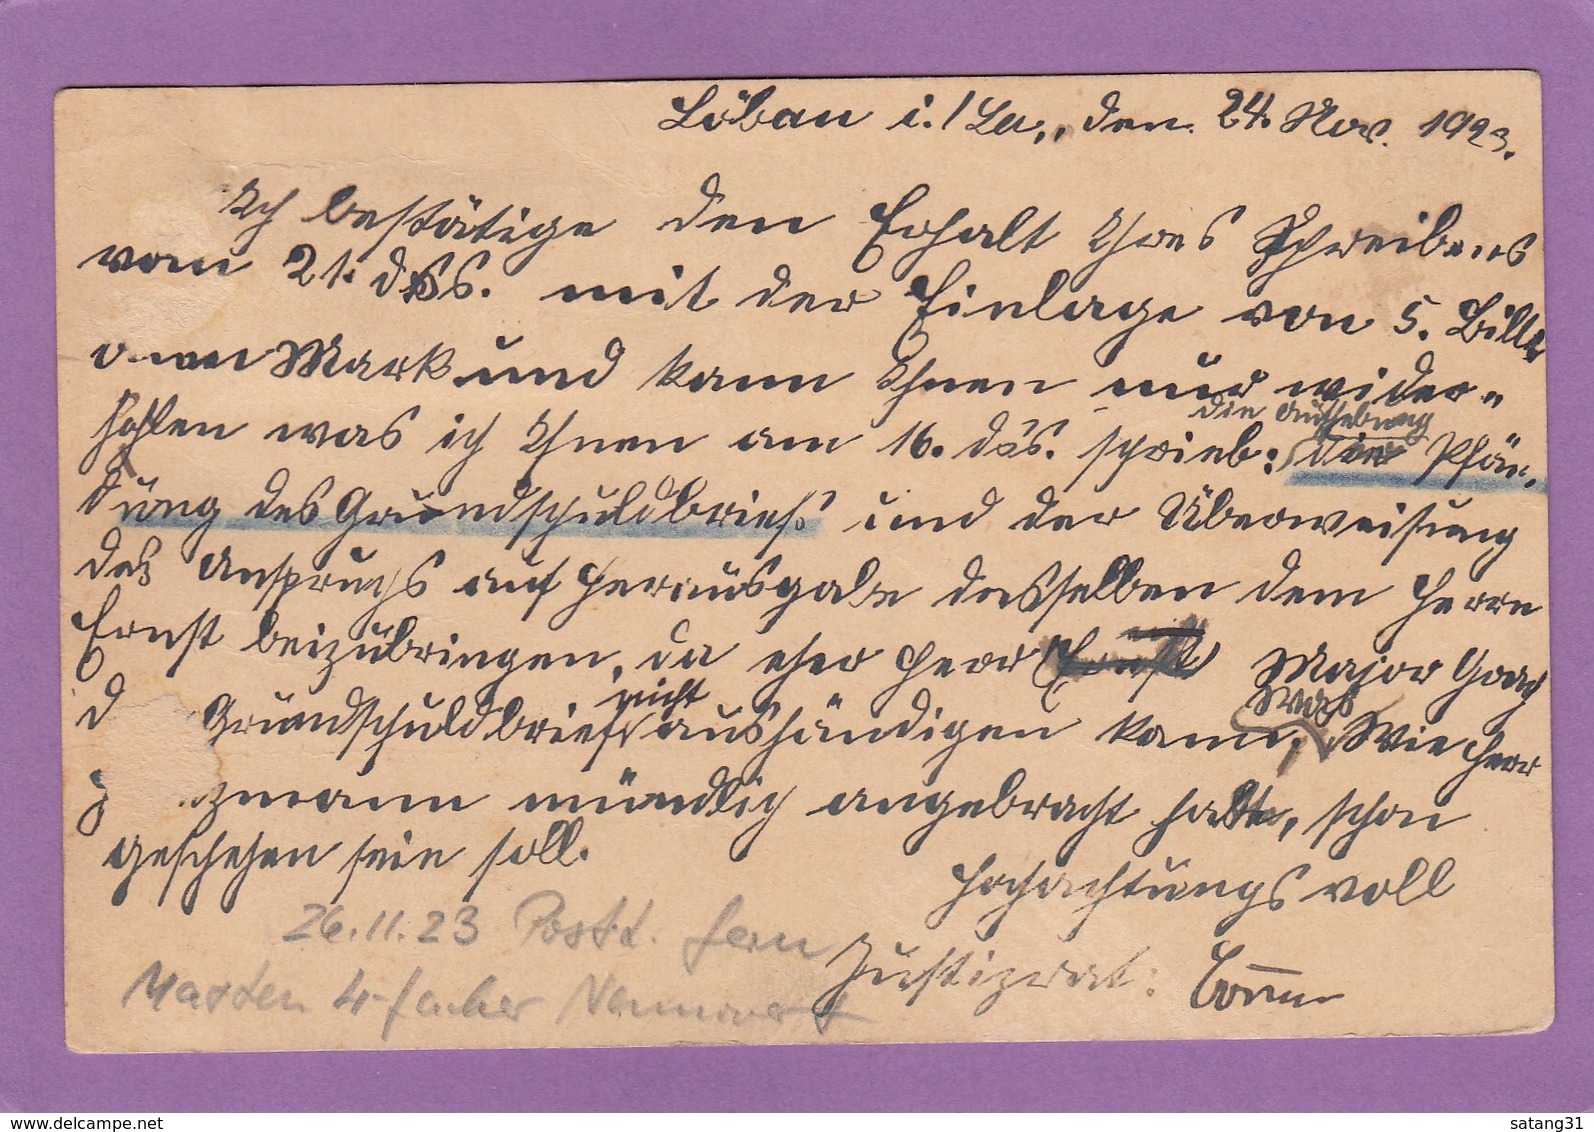 Löbau i./Sa., den 24. Nov. 1923.
Ich bestätige den Erhalt Ihres Schreibens
vom 21. dss. mit der Einlage von 5. Billi
onen Mark und kann Ihnen nur wider-
hohlen was ich Ihnen am 16. dss. schrieb: die Aufhebung der Pfän-
dung des Grundschuldbriefs und der Überweisung
des Anspruchs auf Herausgabe desselben dem Herrn
Ernst beizubringen, da eher Herr Major
d Grundschuldbrief nicht aushändigen kann, was, wie Herr
zmann mündlich angebracht hatte, schon
geschehen sein soll.
Hochachtungsvoll
Justizrat:
26.11.23 Postk. fern
Marken 4-facher Nennwert
satang31